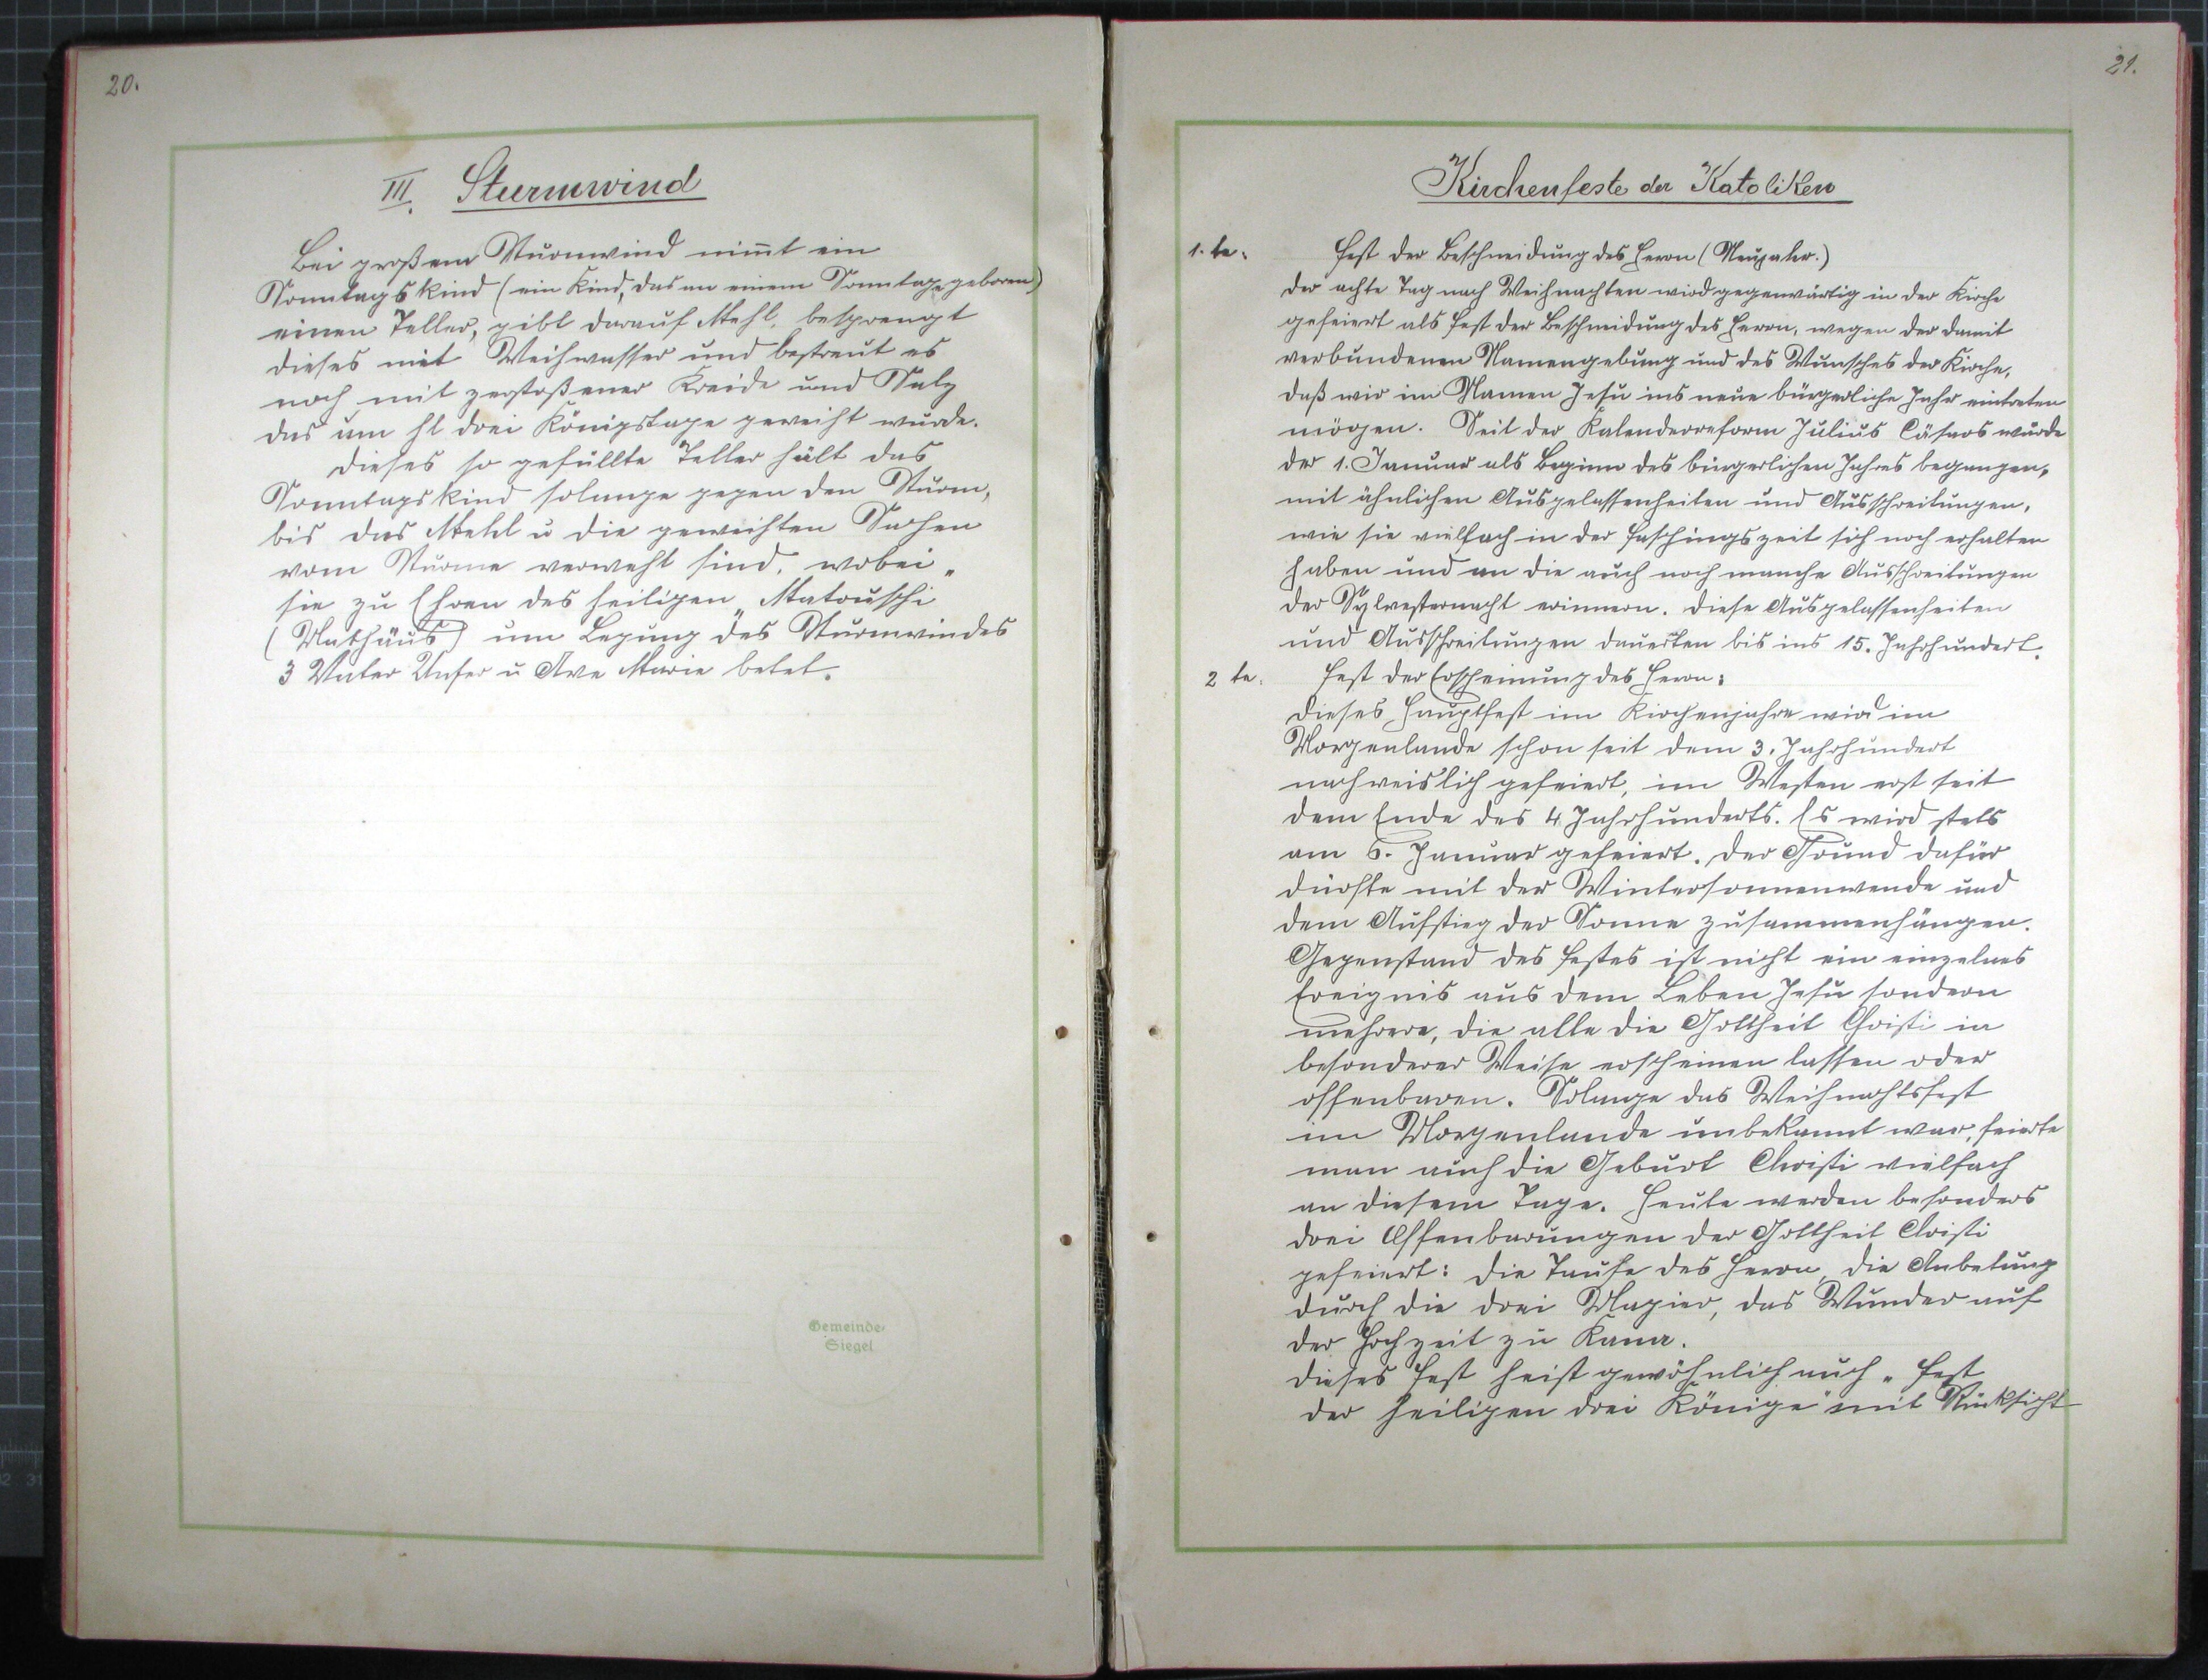 20.
III. Sturmwind
Bei großem Sturmwind nimt ein
Sonntagskind (ein Kind, das an einem Sonntage geboren)
einen Teller, gibt darauf Mehl, besprengt
dieses mit Weihwasser und bestreut es
noch mit zerstoßener Kreide und Salz
das am hl drei Königstage geweiht wurde.
Dieses so gefüllte Teller hält das
Sonntagskind solange gegen den Sturm,
bis das Mehl u die geweihten Sachen
vom Sturme verweht sind, wobei
sie zu Ehren des heiligen „Matouschi"
(Mathäus) um Legung des Sturmwindes
3 Vater Unser u Ave Marie betet.
Gemeinde-
Siegel
21.
Kirchenfeste der Katoliken
1. te. Fest der Beschneidung des Herrn (Neujahr.)
Der achte Tag nach Weihnachten wird gegenwärtig in der Kirche
gefeiert als Fest der Beschneidung des Herrn, wegen der damit
verbundenen Namengebung und des Wunsches der Kirche,
daß wir im Namen Jesu ins neue bürgerliche Jahr eintreten
mögen. Seit der Kalenderreform Julius Cäsars wurde
der 1. Januar als Beginn des bürgerlichen Jahres begangen,
mit ähnlichen Ausgelassenheiten und Ausschreitungen,
wie sie vielfach in der Faschingszeit sich noch erhalten
haben und an die auch noch manche Ausschreitungen
der Sylvesternacht erinnern. Diese Ausgelassenheiten
und Ausschreitungen dauerten bis ins 15. Jahrhundert.
2 te. Fest der Erscheinung des Herrn:
Dieses Hauptfest im Kirchenjahre wird im
Morgenlande schon seit dem 3. Jahrhundert
nachweislich gefeiert, im Westen erst seit
dem Ende des 4 Jahrhunderts. Es wird stets
am 6. Januar gefeiert. Der Grund dafür
dürfte mit der Wintersonnenwende und
dem Aufstieg der Sonne zusammenhängen.
Gegenstand des Festes ist nicht ein einzelnes
Ereignis aus dem Leben Jesu sondern
mehrere, die alle die Gottheit Christi in
besonderer Weise erscheinen lassen oder
offenbaren. Solange das Weihnachtsfest
im Morgenlande unbekannt war, feierte
man auch die Geburt Christi vielfach
an diesem Tage. Heute werden besonders
drei Offenbarungen der Gottheit Christi
gefeiert: Die Taufe des Herrn, die Anbetung
durch die drei Magier, das Wunder auf
der Hochzeit zu Kana.
Dieses Fest heist gewöhnlich auch „Fest
der heiligen drei Könige" mit Rücksicht